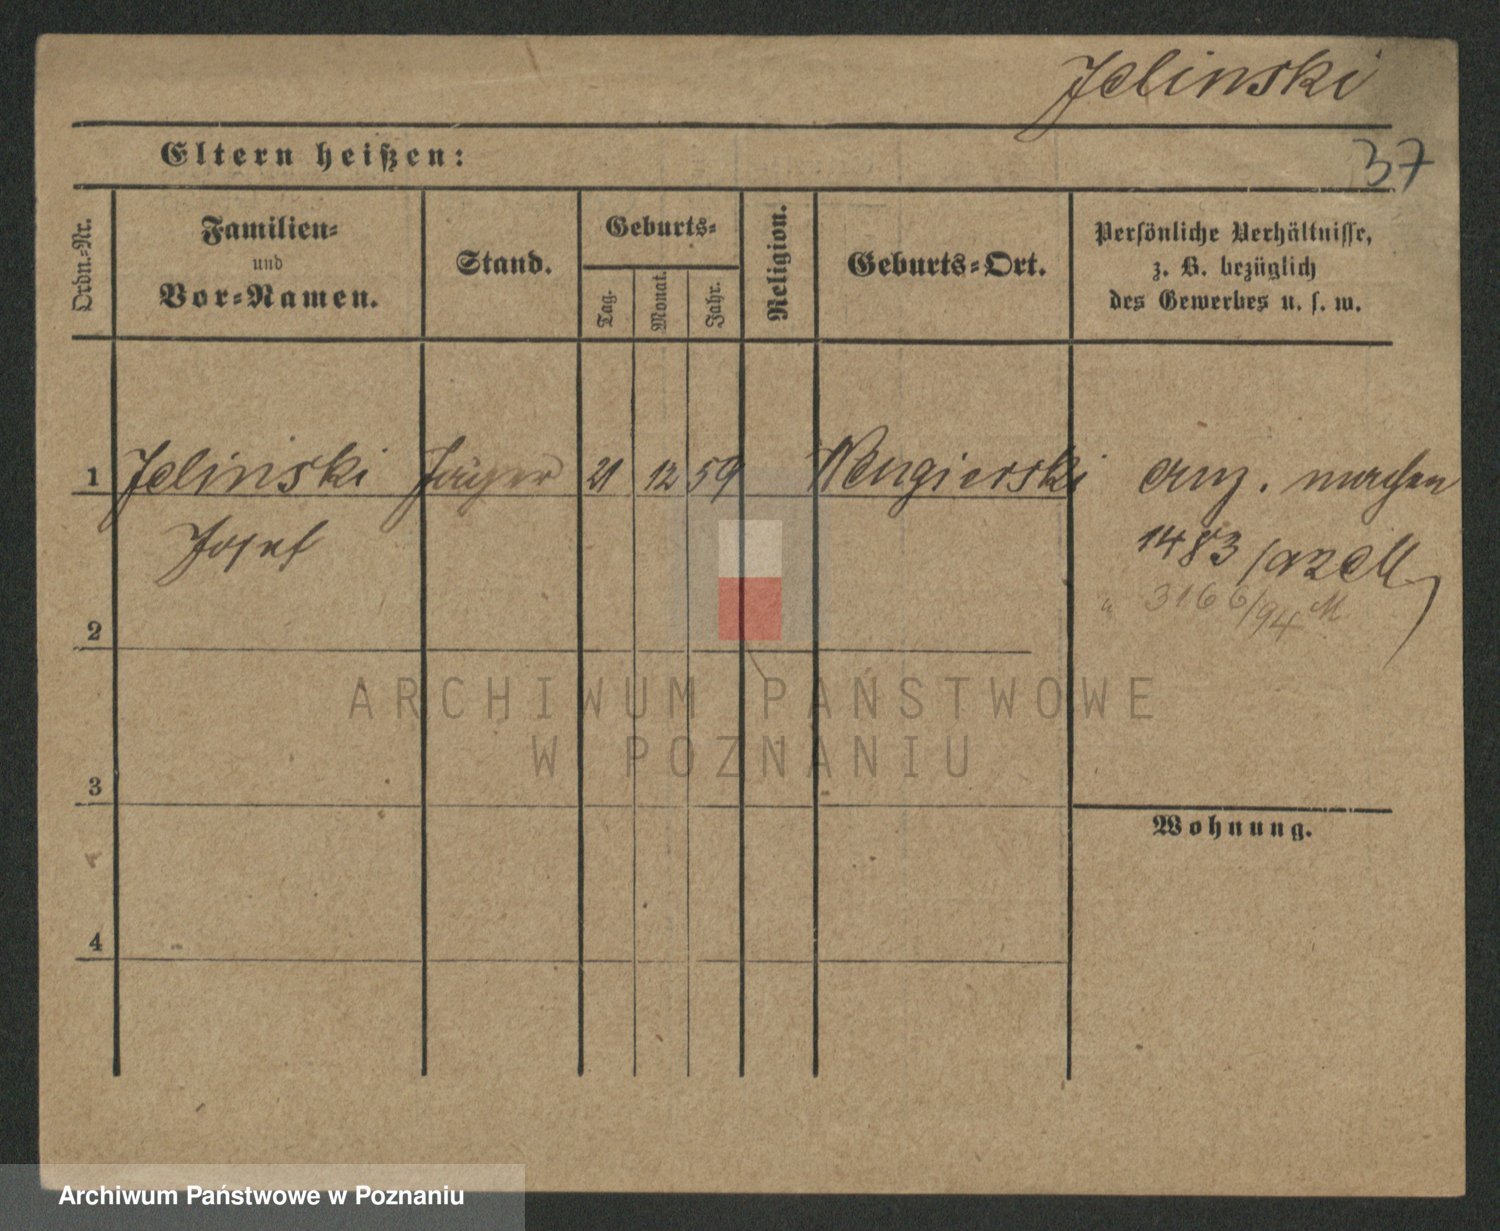 Jelinski
37
Eltern heißen:
Ordn.-Nr.
Familien-
und
Vor-Namen.
Stand.
Geburts-
Tag.
Monat.
Jahr.
Religion.
Geburts-Ort.
Persönliche Verhältnisse,
z. B. bezüglich
des Gewerbes u. s. w.
1 Jelinski Jäger 21 12 59 Wengierski anz. machen
Josef
1483/92 M
3166/94 M
2
ARCHIWUM PAŃSTWOWE
W POZNANIU
3
Wohnung.
4
Archiwum Państwowe w Poznaniu